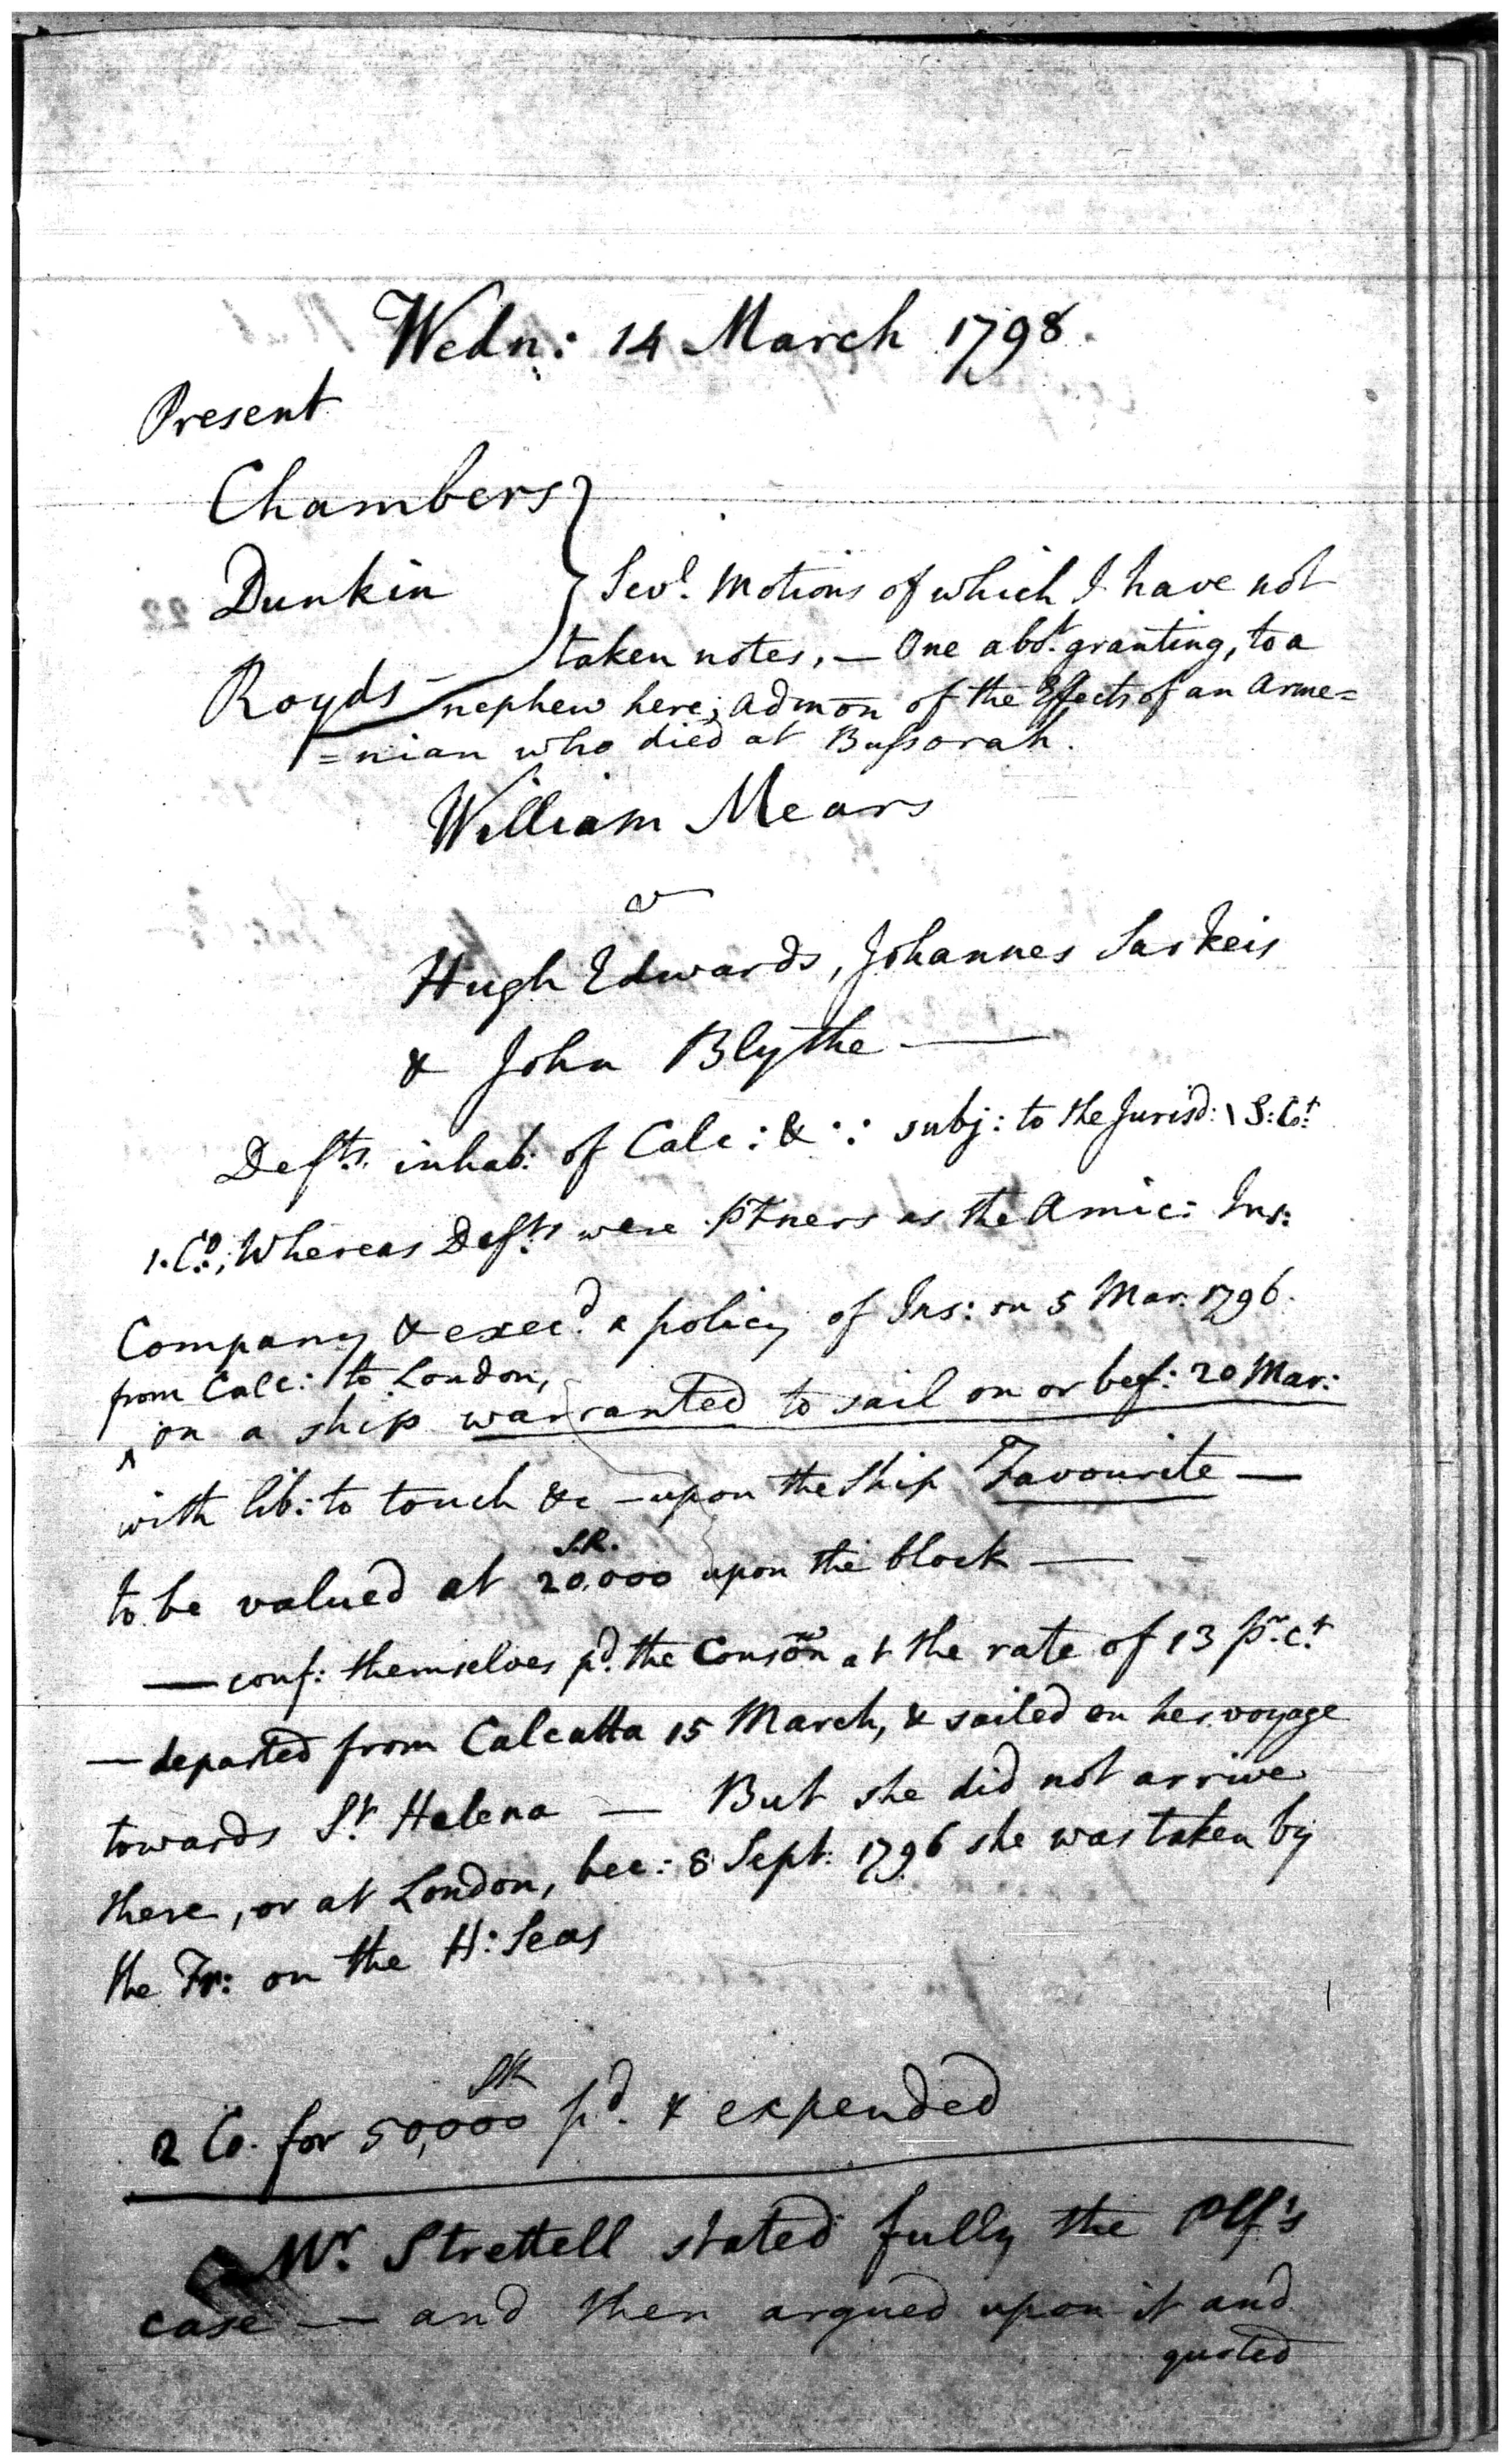 Wedn: 14 March 1798.
Present
Chambers
Dunkin
Sevl. Motions of which I have not
taken notes, — One abt. granting, to a
Royds
nephew here, admōn of the Effects of an Arme=
=nian who died at Bussorah.
William Mears
v
Hugh Edwards, Johannes Sarkeis
& John Blythe —
Defts. inhab: of Calc: & ∵ subj: to the Jurisd: \ S: Ct.
1. Co.; Whereas Defts were ptners as the Amic: Ins:
Company & execd. a policy of Ins: on 5 Mar. 1796.
from Calc: to London,
^ on a ship warranted to sail on or bef: 20 Mar:
with lib: to touch &c — upon the Ship Favourite —
S.R.
to be valued at 20,000 upon the block —
— conf: themselves pd. the Consōn at the rate of 13 pr. ct.
— departed from Calcutta 15 March, & sailed on her voyage
towards St. Helena — But she did not arrive
there, or at London, bec: 8 Sept. 1796 she was taken by
the Fr: on the H: Seas
SR
2 Co. for 50,000 pd. & expended
Mr. Strettell stated fully the Plf's
case — and then argued upon it and
quoted